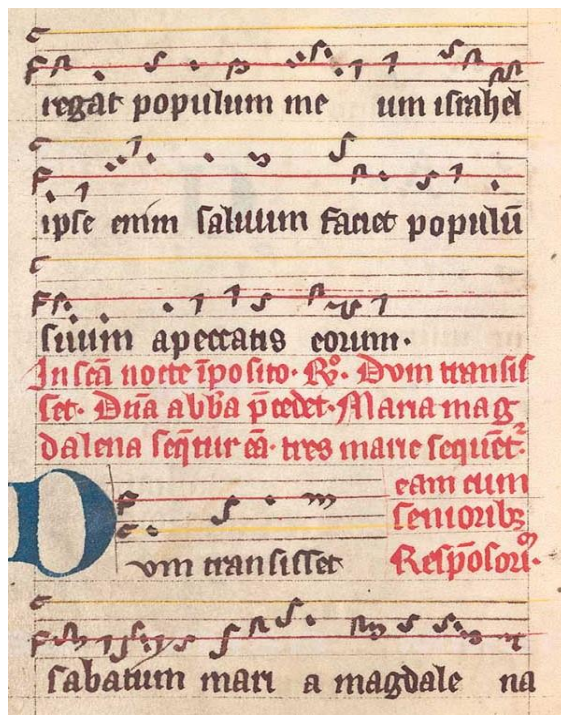 regat populum me um israhel
ipse enim saluum faciet populū
suum apeccatis eorum·
In scā nocte īposito· R̸o· Dvm transis
set· Dn̄a abb̄a p̄cedet· Maria mag
dalena seq̄tur eā· tres marie sequēt᷑·
eam cum
senioribꝫ
Dvm transisset
Respōsorī·
sabatum mari a magdale na